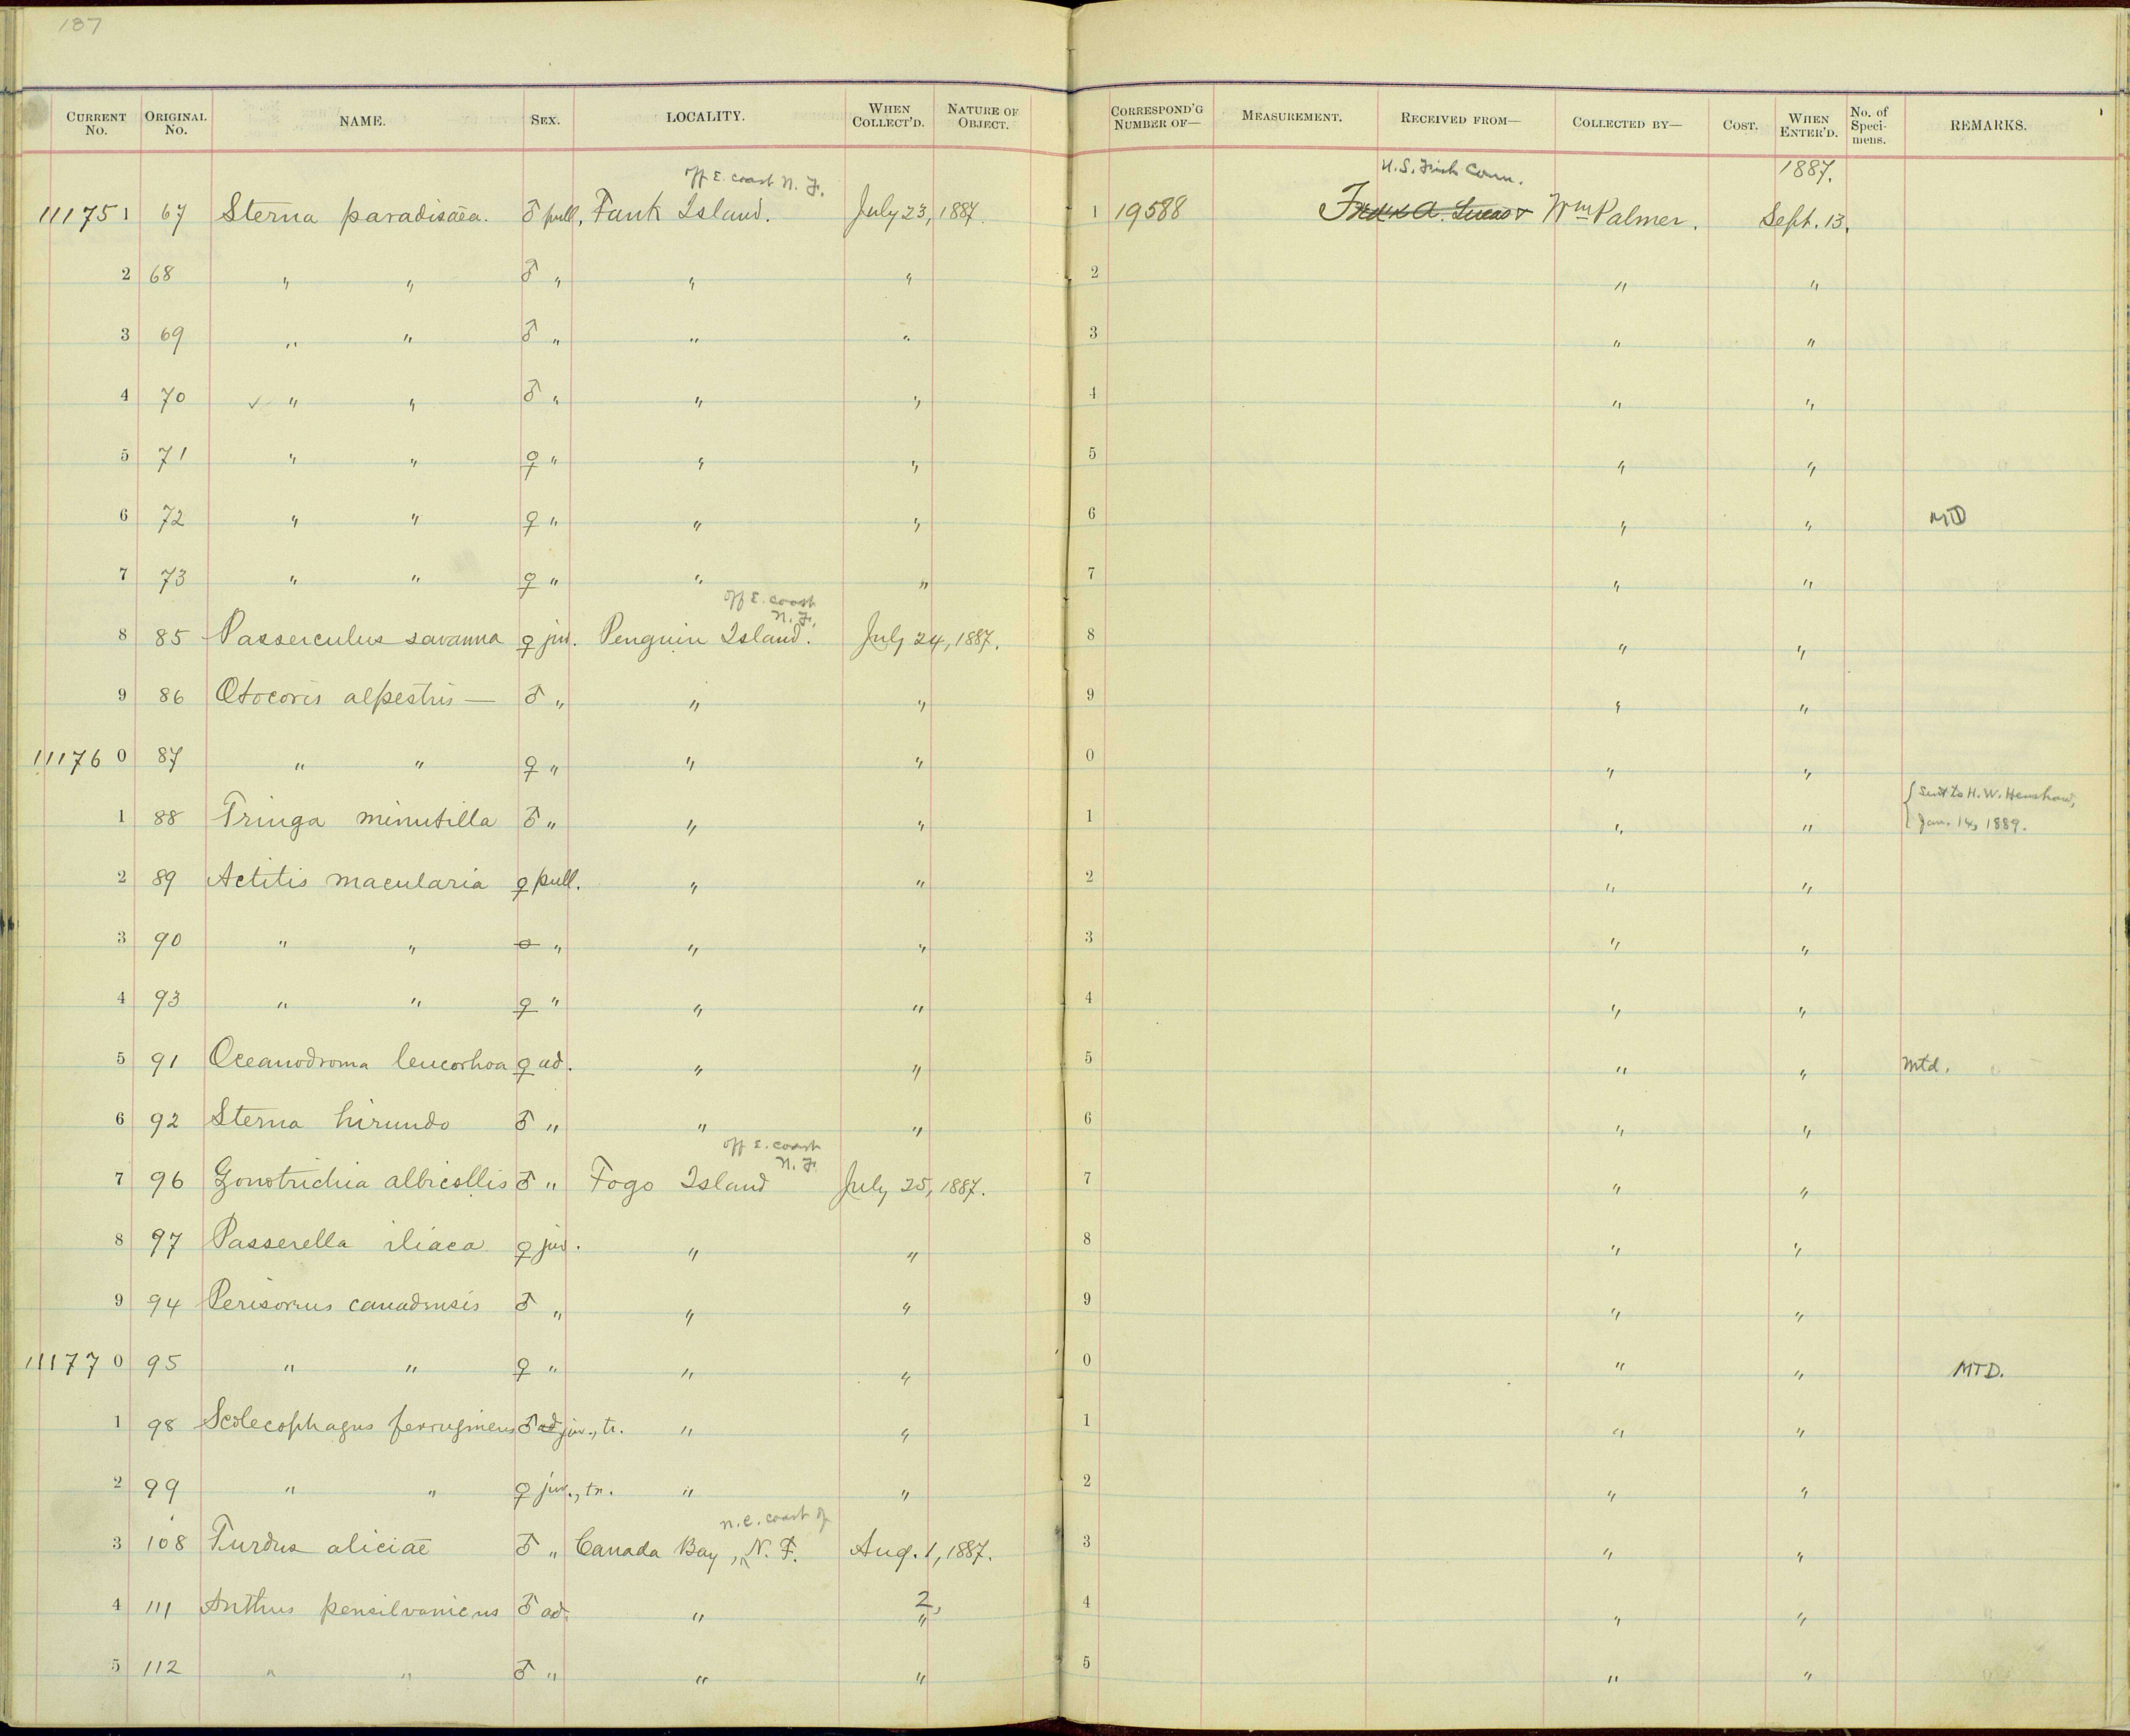 187
CURRENT No. ORIGINAL No. NAME. SEX. LOCALITY. WHEN COLLECT'D. NATURE OF OBJECT. CORRESPOND'G NUMBER OF— MEASUREMENT. RECEIVED FROM— COLLECTED BY— COST. WHEN ENTER'D. No. of Speci-mens. REMARKS.
off E. coast N. F. U.S. Fish Com. 1887.
111751 67 Sterna paradisaea. ♂ pull, Funk Island. July 23, 1887. 1 19588 Fred'k A. Lucas & Wm Palmer. Sept. 13,
2 68 " " ♂ " " " 2 " "
3 69 " " ♂ " " " 3 " "
4 70 ✓ " " ♂ " " " 4 " "
5 71 " " ♀ " " " 5 " "
6 72 " " ♀ " " " 6 " " MTD
7 73 " " ♀ " " " 7 " "
off E. coast N. F.
8 85 Passerculus savanna ♀ juv. Penguin Island. July 24, 1887. 8 " "
9 86 Otocoris alpestris — ♂ " " " 9 " "
111760 87 " " ♀ " " " 0 " "
1 88 Tringa minutilla ♂ " " " 1 " " { Sent to H. W. Henshaw, Jan. 14, 1889.
2 89 Actitis macularia ♀ pull. " " 2 " "
3 90 " " o " " " 3 " "
4 93 " " ♀ " " " 4 " "
5 91 Oceanodroma leucorhoa ♀ ad. " " 5 " " Mtd.
6 92 Sterna hirundo ♂ " " " 6 " "
off E. coast N. F.
7 96 Zonotrichia albicollis ♂ " Fogo Island July 25, 1887. 7 " "
8 97 Passerella iliaca ♀ juv. " " 8 " "
9 94 Perisoreus canadensis ♂ " " " 9 " "
111770 95 " " ♀ " " " 0 " " MTD.
1 98 Scolecophagus ferrugineus ♂ ad juv., tr. " " 1 " "
2 99 " " ♀ juv., tr. " " 2 " "
n.e. coast of
3 108 Turdus aliciae ♂ " Canada Bay, ^ N. F. Aug. 1, 1887. 3 " "
4 111 Anthus pensilvanicus ♂ ad. " 2, " 4 " "
5 112 " " ♂ " " " 5 " "